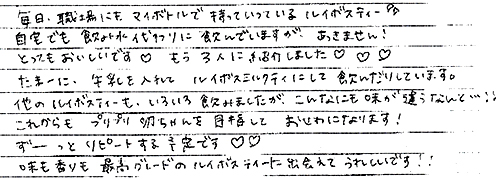 毎日、職場にも マイボトルで 持っていっている ルイボスティー
自宅でも 飲み水代わりに 飲んでいますが、あきません!
とってもおいしいです♡ もう 3人に 紹介しました ♡ ♡ ♡
たまーに、牛乳を入れて ルイボスミルクティにして 飲んだりしています。
他のルイボスティーも、いろいろ 飲みましたが、こんなにも 味が 違うなんて…!!
これからも プリプリ 幼ちゃんを 目指して おせわになります!
ずーっと リピートする 予定です♡♡
味も香りも 最高グレードの ルイボスティーに 出会えて うれしいです!!